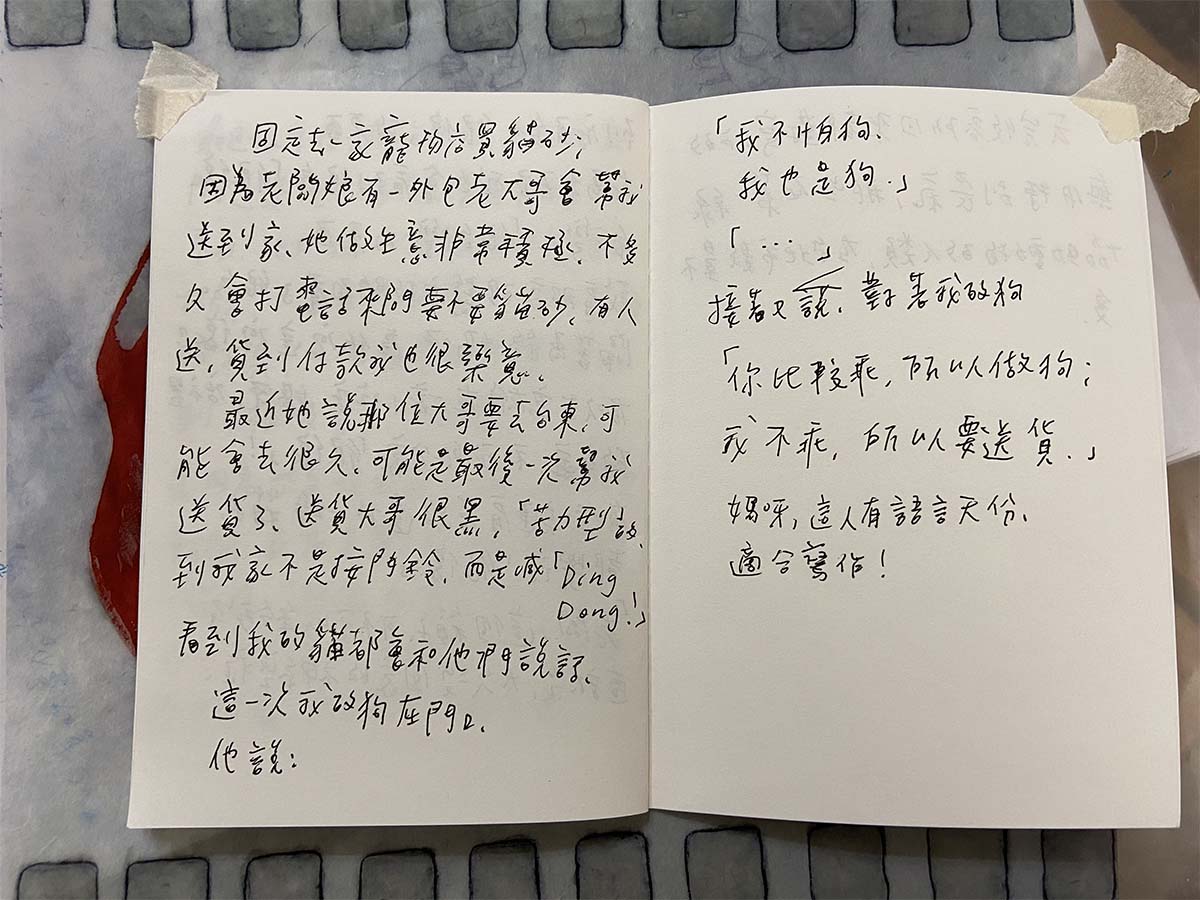 固定去一家寵物店買貓砂；
因為老闆娘有一外包老大哥會幫我
送到家、她做生意非常積極、不多
久會打電話來問要不要貓砂、有人
送，貨到付款我也很樂意、
最近她說那位大哥要去台東，可
能會去很久、可能是最後一次幫我
送貨了、送貨大哥很黑，「苦力型」的、
到我家不是按門鈴、而是喊「Ding
Dong！」
看到我的貓都會和他們說話、
這一次我的狗在門口、
他說：
「我不怕狗、
我也是狗．」
「…」
接著又說、對著我的狗
「你比較乖，所以做狗；
我不乖，所以要送貨．」
媽呀，這人有語言天份、
適合寫作！